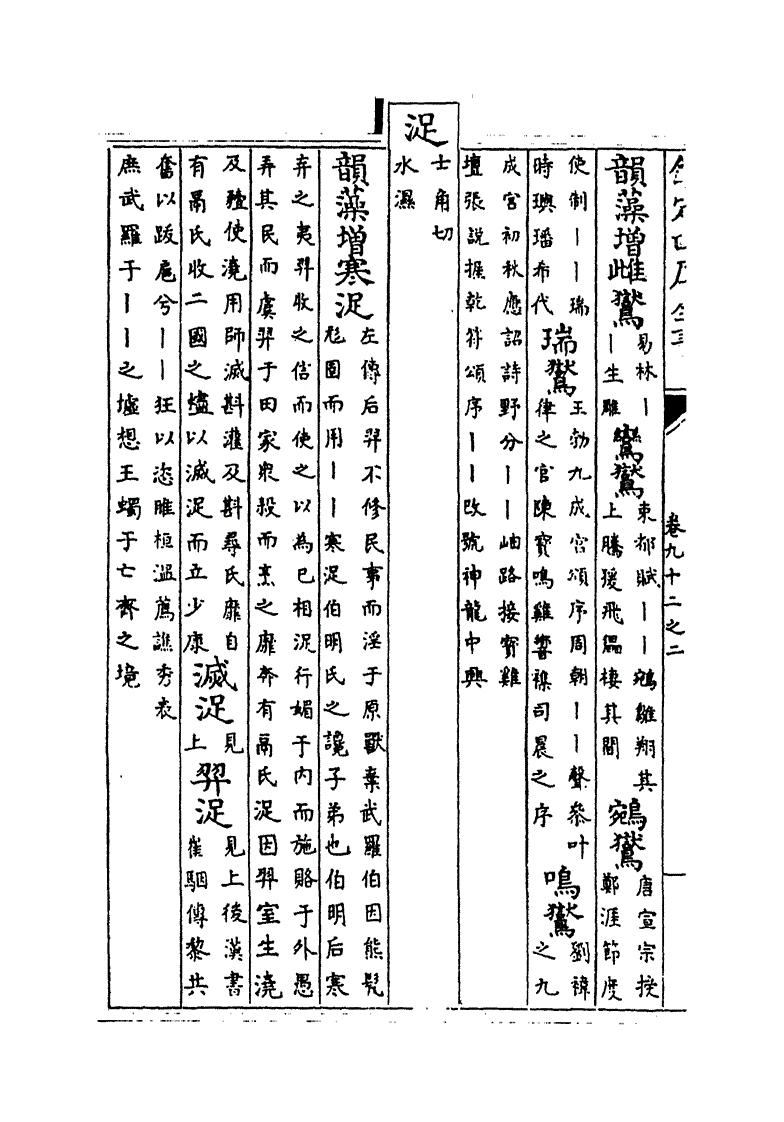 欽定四庫全書
卷九十二之二
韻藻增雌鸑 易林丨
丨生雛 鸞鸑 東都賦丨丨鵷雛翔其
上騰猨飛鼯棲其間 鵷鸑 唐宣宗授
鄭涯節度
使制丨丨瑞
時璵璠希代 瑞鸑 王勃九成宮頌序周朝丨丨聲參叶
律之官陳寶鳴雞響襍司晨之序 鳴鸑 劉禕
之九
成宮初秋應詔詩野分丨丨岫路接寶雞
壇張説握乾符頌序丨丨改號神龍中興
浞
士角切
水濕
韻藻增寒浞 左傳后羿不修民事而淫于原獸棄武羅伯因熊髠
尨圉而用丨丨寒浞伯明氏之讒子弟也伯明后寒
弃之夷羿收之信而使之以為已相浞行媚于内而施賂于外愚
弄其民而虞羿于田家衆殺而烹之靡奔有鬲氏浞因羿室生澆
及豷使澆用師滅斟灌及斟尋氏靡自
有鬲氏收二國之燼以滅浞而立少康 滅浞 見
上 羿浞 見上後漢書
崔駰傳黎共
奮以跋扈兮丨丨狂以恣睢桓溫薦譙秀表
庶武羅于丨丨之墟想王蠋于亡齊之境